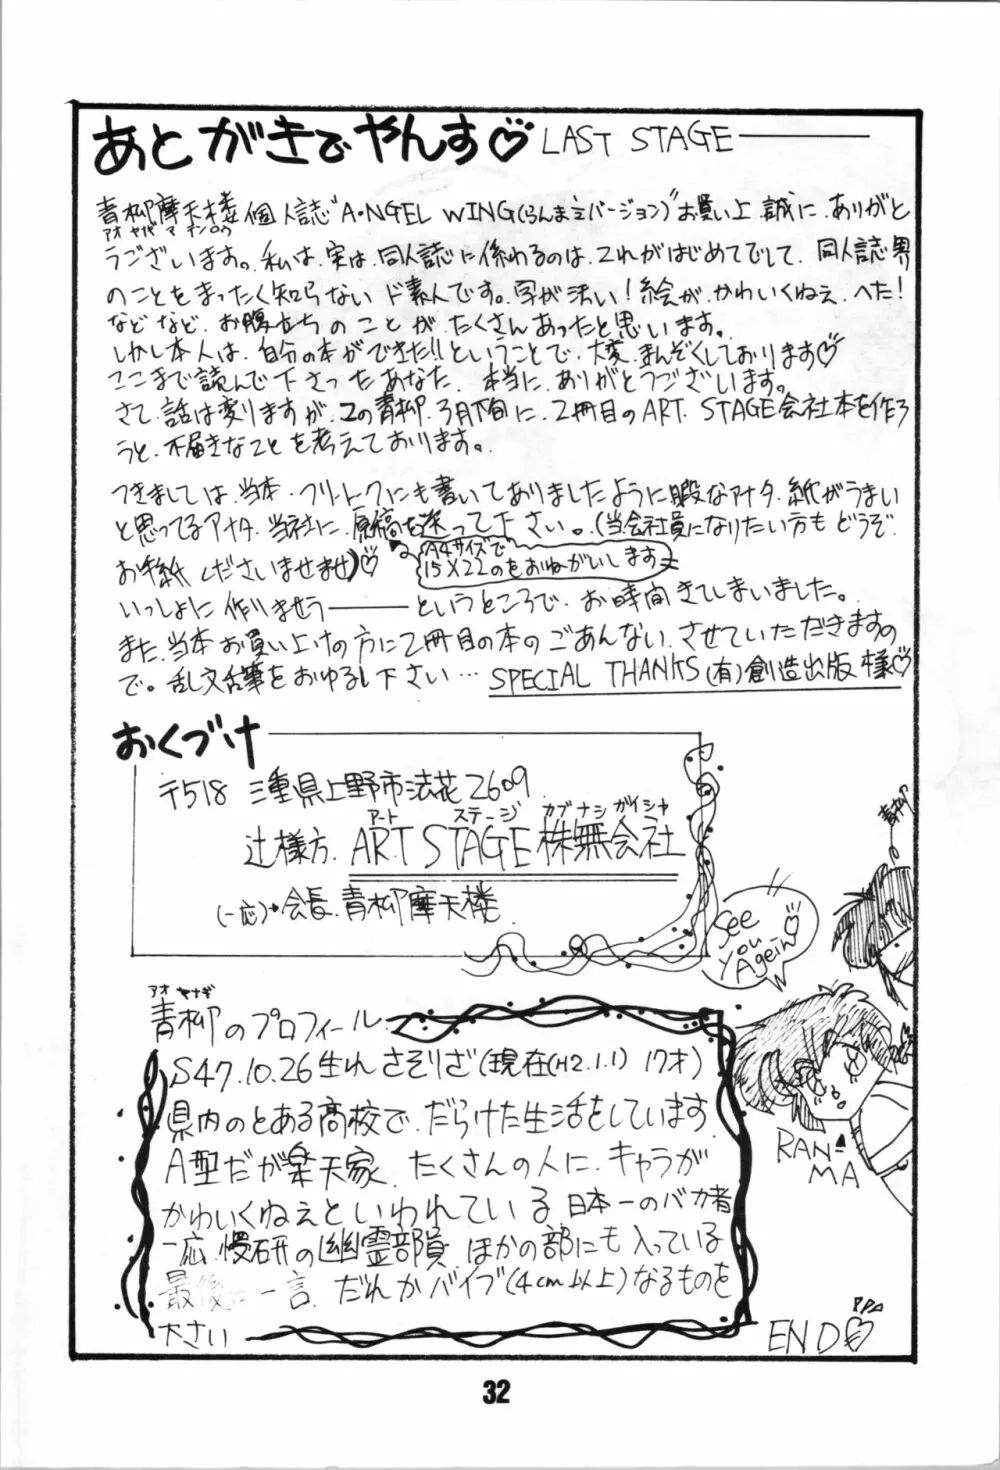 あとがきでやんす♡ LAST STAGE
青柳摩天楼個人誌"A・NGEL WING(らんま½バージョン)"お買い上、誠に、ありがと
アオ ヤナギ マ テンロウ
うございます。私は、実は、同人誌に係わるのは、これがはじめてでして、同人誌界
のことをまったく知らないド素人です。字が汚い!絵が、かわいくねぇ、へた!
などなど、お腹立ちのことが、たくさんあったと思います。
しかし本人は、自分の本ができた!!ということで、大変、まんぞくしております♡
ここまで読んで下さったあなた、本当に、ありがとうございます。
さて、話は変りますが、この青柳、3月下旬に、2冊目のART. STAGE会社本を作ろ
うと、不届きなことを考えております。
つきましては、当本・フリートークにも書いてありましたように暇なアナタ、紙がうまい
と思ってるアナタ、当社に、原稿を送って下さい。(当会社員になりたい方もどうぞ
A4サイズで
15×22のをおねがいします
お手紙くださいませませ)♡
いっしょに作りませう――というところで、お時間きてしまいました。
また、当本お買い上げの方に2冊目の本のごあんない、させていただきますの
で。乱文乱筆をおゆるし下さい… SPECIAL THANKS(有)創造出版様♡
おくづけ
〒518 三重県上野市法花2609
アート ステージ カブナシ ガイシャ
辻様方. ART STAGE 株無会社
(一応)会長.青柳摩天楼
青柳
See
you
Agein
RAN-
MA
アオ ヤナギ
青柳のプロフィール
S47.10.26生れ さそりざ(現在(H2.1.1) 17才)
県内のとある高校で、だらけた生活をしています.
A型だが楽天家、たくさんの人に、キャラが
かわいくねぇといわれている日本一のバカ者
一応、慢研の幽霊部員、ほかの部にも入っている
最後に一言、だれかバイブ(4cm以上)なるものを
下さい
END
32